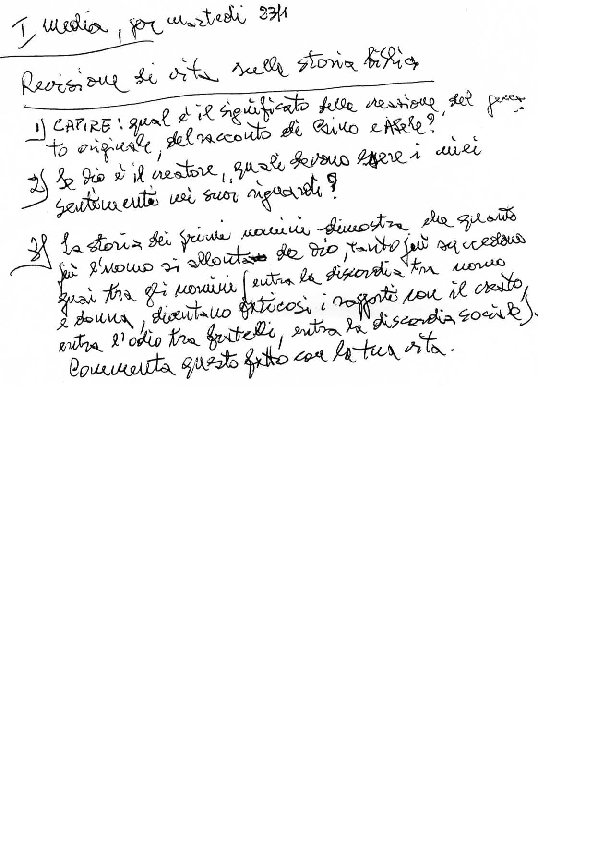 I media, per martedì 23/1
Revisione di vita sulla storia biblica
1) CAPIRE: qual è il significato della creazione, del pecca-
to originale, del racconto di Caino e Abele?
2) Se Dio è il creatore, quali devono essere i miei
sentimenti nei suoi riguardi?
3) La storia dei primi uomini dimostra che quanto
più l'uomo si allontana da Dio, tanto più succedono
guai tra gli uomini (entra la discordia tra uomo
e donna, diventano faticosi i rapporti con il creato,
entra l'odio tra fratelli, entra la discordia sociale).
Commenta questo fatto con la tua vita.